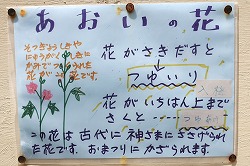 あおいの花
そつぎょうしきや
にゅうがくしきに
かみでつくられた
花がこの花です。
花がさきだすと
つゆいり
入梅
花がいちばん上まで
さくと……つゆあけ
この花は古代に神さまにささげられ
た花です。おまつりにかざられます。